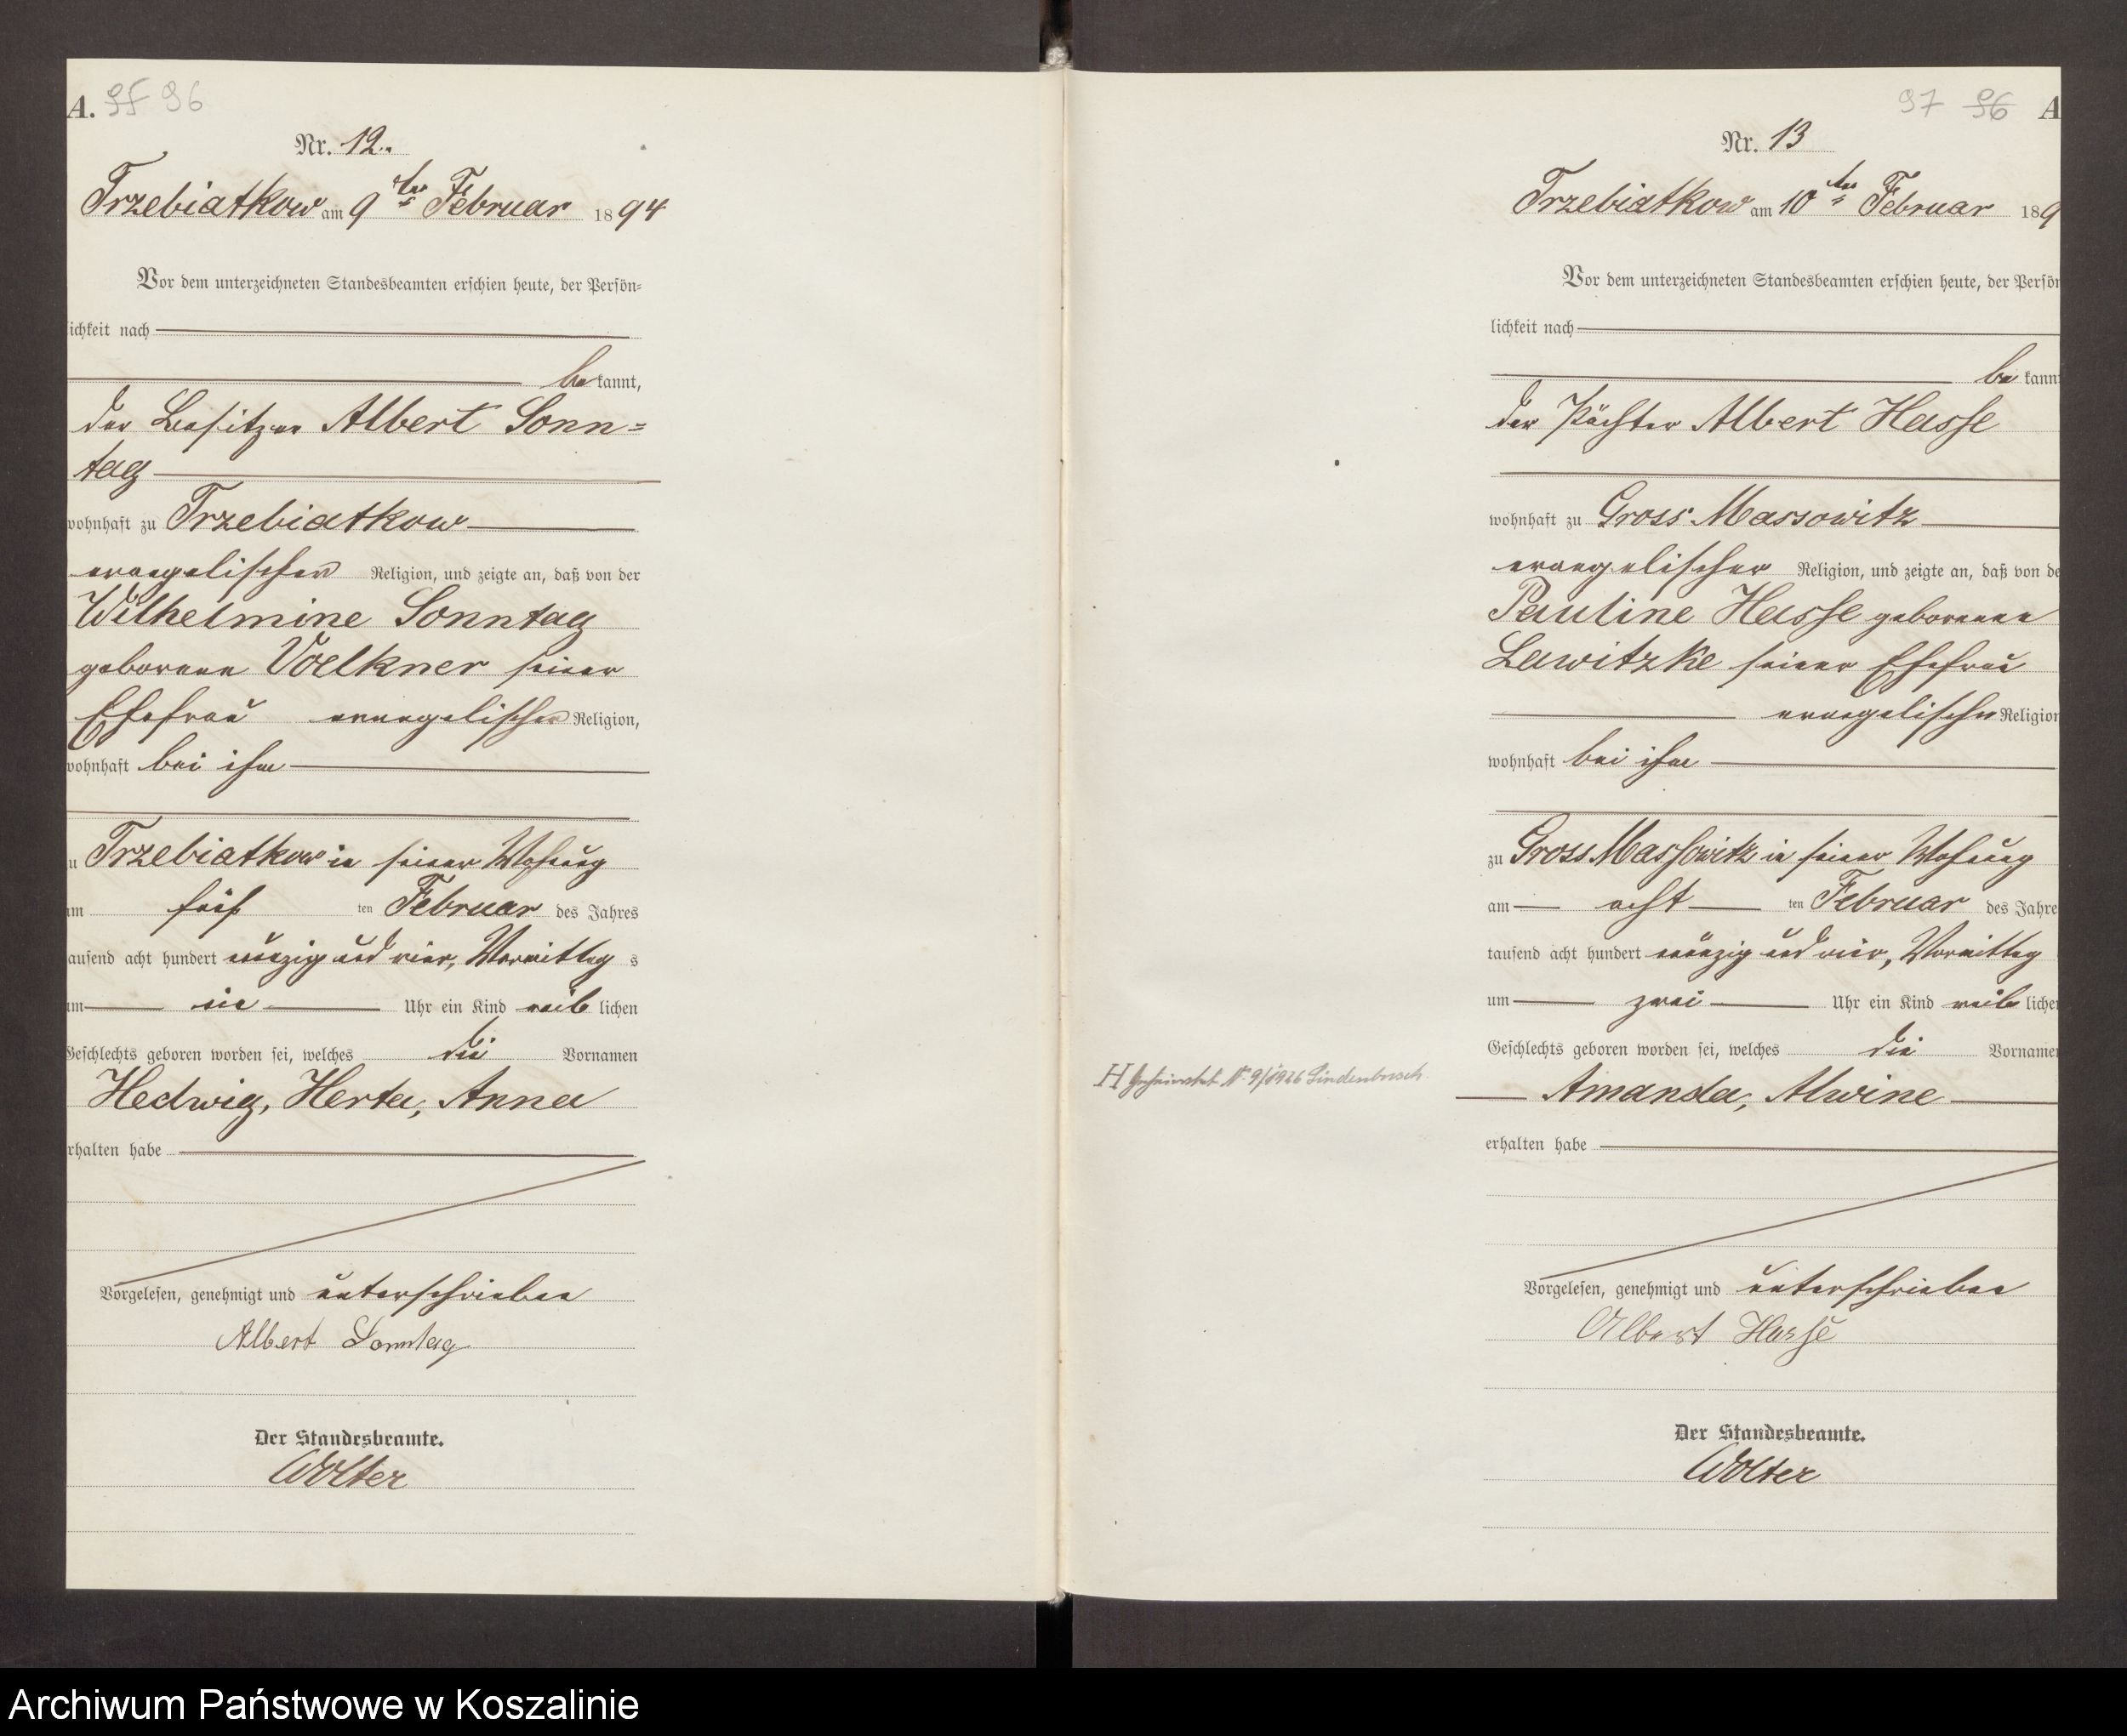 A. 95 96
Nr. 12.
Trzebiatkow am 9ten Februar 1894
Vor dem unterzeichneten Standesbeamten erschien heute, der Persön-
lichkeit nach
be kannt,
der Besitzer Albert Sonn-
tag
wohnhaft zu Trzebiatkow
evangelischer Religion, und zeigte an, daß von der
Wilhelmine Sonntag
geborenen Voelkner seiner
Ehefrau evangelischer Religion,
wohnhaft bei ihm
zu Trzebiatkow in seiner Wohnung
am fünf ten Februar des Jahres
tausend acht hundert neunzig und vier, Vormittag s
um ein Uhr ein Kind weib lichen
Geschlechts geboren worden sei, welches die Vornamen
Hedwig, Herta, Anna
erhalten habe
Vorgelesen, genehmigt und unterschrieben
Albert Sonntag
Der Standesbeamte.
Wolter
97 96 A
Nr. 13
Trzebiatkow am 10ten Februar 189
Vor dem unterzeichneten Standesbeamten erschien heute, der Persön
lichkeit nach
be kannt
der Pächter Albert Hasse
wohnhaft zu Gross Massowitz
evangelischer Religion, und zeigte an, daß von de
Pauline Hasse geborenen
Lawitzke seiner Ehefrau
evangelischer Religion
wohnhaft bei ihm
zu Gross Massowitz in seiner Wohnung
am acht ten Februar des Jahre
tausend acht hundert neunzig und vier, Vormittag
um zwei Uhr ein Kind weib liche
Geschlechts geboren worden sei, welches die Vorname
H Geheiratet Nr. 9/1926 Lindenbusch
Amanda, Alwine
erhalten habe
Vorgelesen, genehmigt und unterschrieben
Albert Hasse
Der Standesbeamte.
Wolter
Archiwum Państwowe w Koszalinie